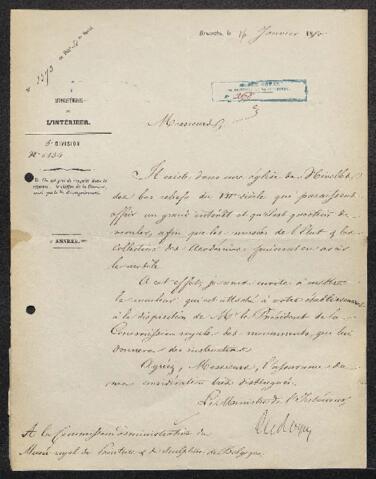 Bruxelles, le 14 Janvier 18
MINISTÈRE
DE
L'INTÉRIEUR.
5e DIVISION
No
ANNEXES.
Messieurs,
Il existe dans une église de Nivelles
des bas reliefs du siècle qui paraissent
offrir un grand intérêt et qu'il est question de
mouler, afin que les musées de l'État & les
collections des Académies puissent en avoir
le modèle.
A cet effet, je vous invite à mettre
le mouleur qui est attaché à votre établissement
à la disposition de Mr le Président de la
Commission royale des monuments, qui lui
donnera des instructions.
Agréez, Messieurs, l'assurance de
ma considération très distinguée.
Le Ministre de l'Intérieur,
A la Commission administrative du
Musée royal de Peinture & de Sculpture de Belgique.